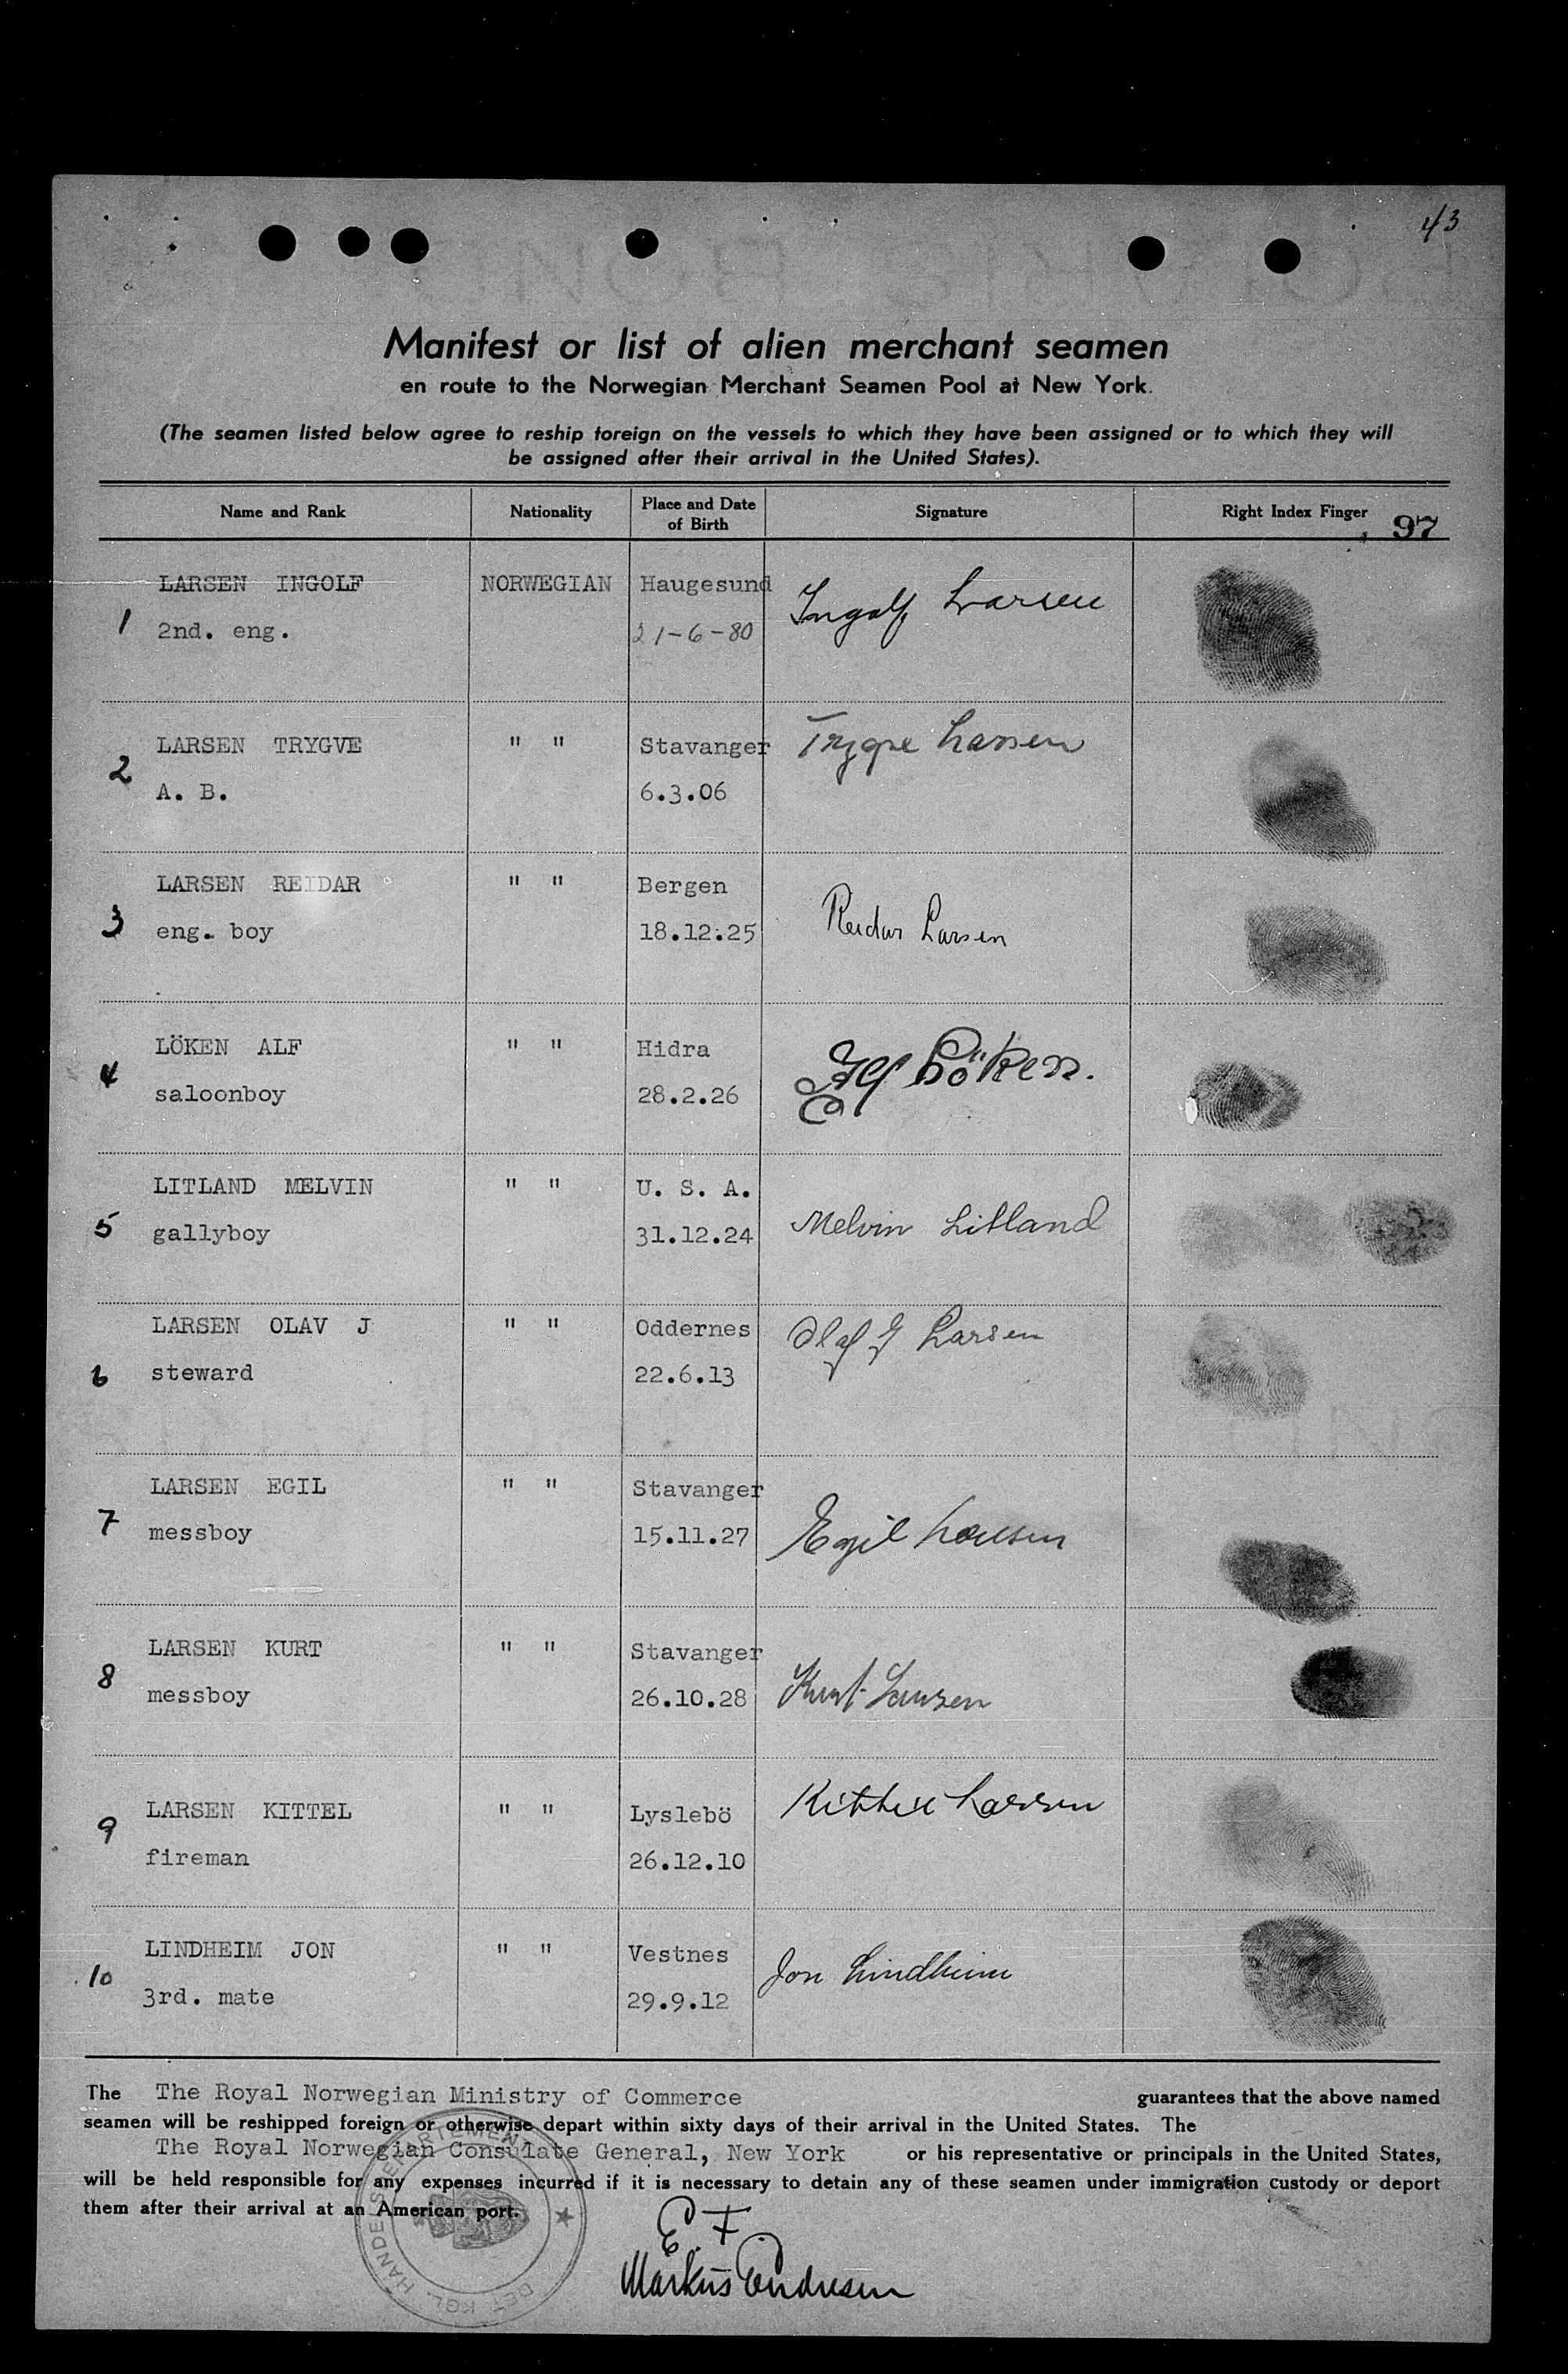 43
Manifest or list of alien merchant seamen
en route to the Norwegian Merchant Seamen Pool at New York.
(The seamen listed below agree to reship foreign on the vessels to which they have been assigned or to which they will
be assigned after their arrival in the United States).
Name and Rank Nationality Place and Date of Birth Signature Right Index Finger 97
LARSEN INGOLF NORWEGIAN Haugesund Ingolf Larsen
1 2nd. eng. 21-6-80
LARSEN TRYGVE " " Stavanger Trygve Larsen
2 A. B. 6.3.06
LARSEN REIDAR " " Bergen Reidar Larsen
3 eng. boy 18.12.25
LÖKEN ALF " " Hidra Alf Löken.
4 saloonboy 28.2.26
LITLAND MELVIN " " U. S. A. Melvin Litland
5 gallyboy 31.12.24
LARSEN OLAV J " " Oddernes Olaf J Larsen
6 steward 22.6.13
LARSEN EGIL " " Stavanger Egil Larsen
7 messboy 15.11.27
LARSEN KURT " " Stavanger Kurt Larsen
8 messboy 26.10.28
LARSEN KITTEL " " Lyslebö Kittel Larsen
9 fireman 26.12.10
LINDHEIM JON " " Vestnes Jon Lindheim
10 3rd. mate 29.9.12
The The Royal Norwegian Ministry of Commerce guarantees that the above named
seamen will be reshipped foreign or otherwise depart within sixty days of their arrival in the United States. The
The Royal Norwegian Consulate General, New York or his representative or principals in the United States,
will be held responsible for any expenses incurred if it is necessary to detain any of these seamen under immigration custody or deport
them after their arrival at an American port.
E. F.
Markus Endresen
DET KGL. HANDELSDEPARTEMENT